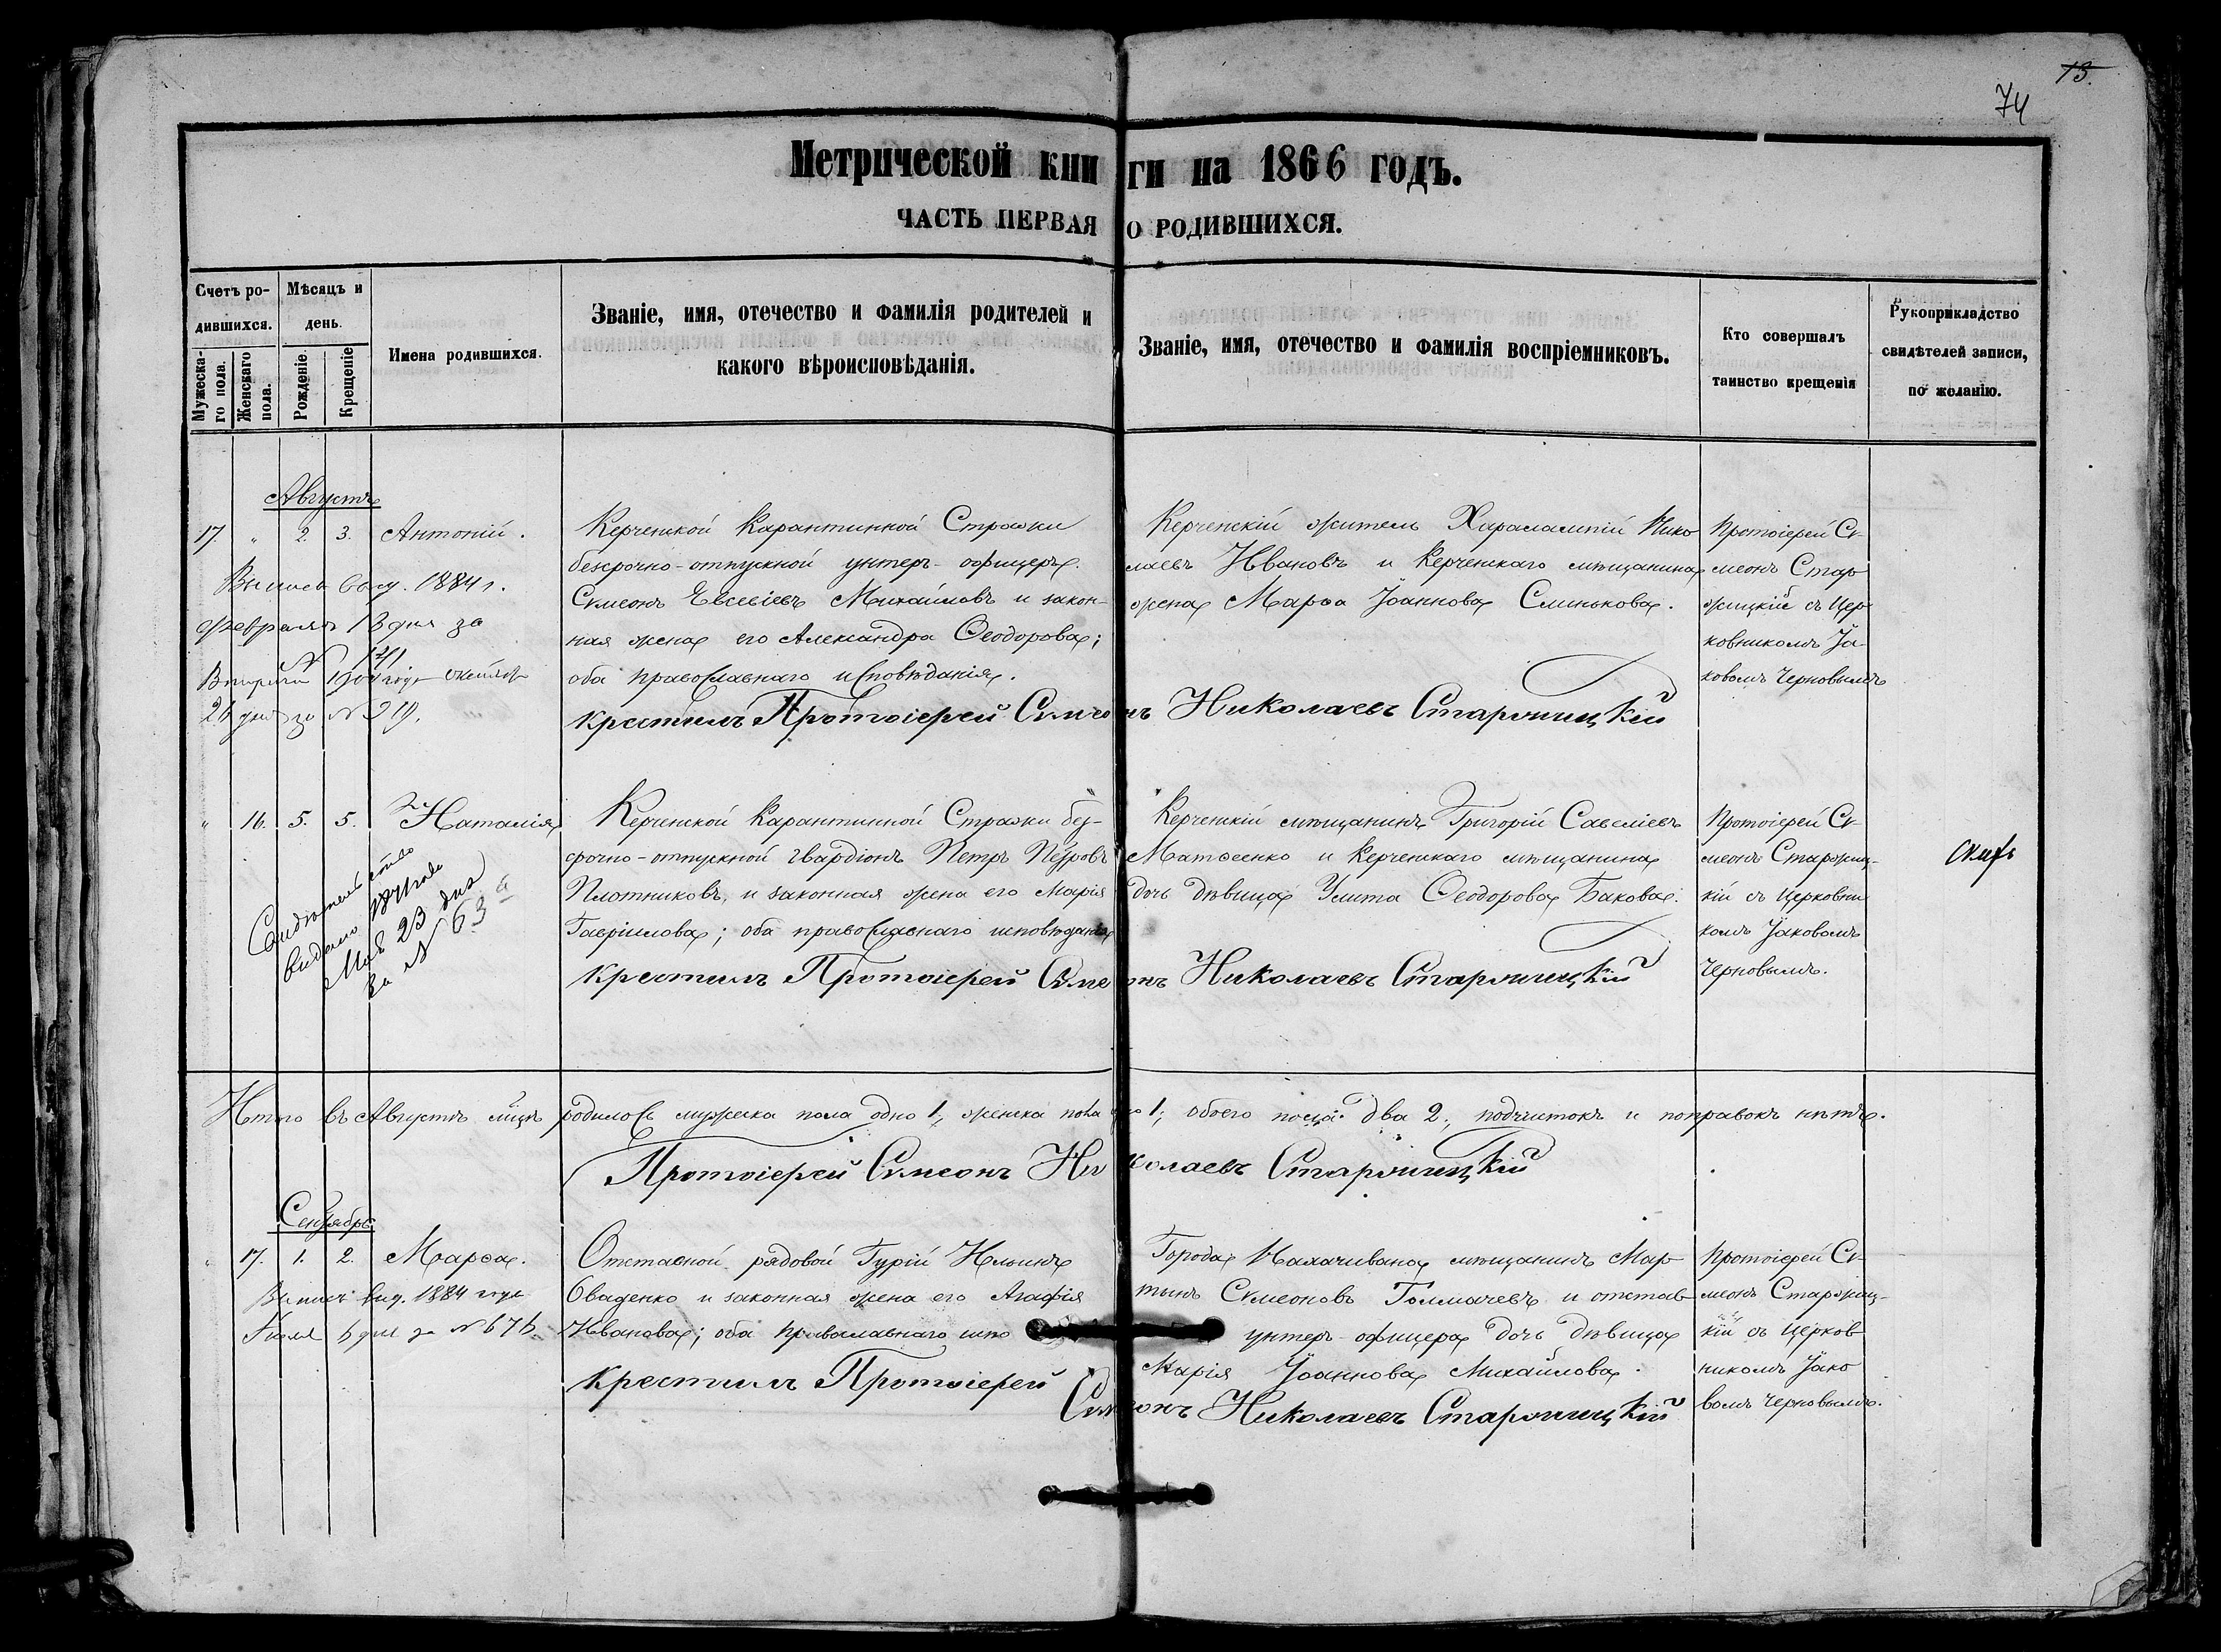 13.
74
Метрической книги на 1866 годъ.
ЧАСТЬ ПЕРВАЯ О РОДИВШИХСЯ.
Счетъ ро-
дившихся.
Мужеска-
го пола.
Женскаго
пола.
Мѣсяцъ и
день.
Рожденіе.
Крещеніе
Имена родившихся.
Званіе, имя, отечество и фамилія родителей и
какого вѣроисповѣданія.
Званіе, имя, отечество и фамилія воспріемниковъ.
Кто совершалъ
таинство крещенія
Рукоприкладство
свидѣтелей записи,
по желанію.
Августъ
17. " 2. 3. Антоній.
Керченской Карантинной Стражи
безсрочно-отпускной унтеръ-офицеръ
Сѵмеонъ Евсевіевъ Михайловъ и закон-
ная жена его Александра Ѳеодорова;
оба православнаго исповѣданія.
Керченскій житель Харалампій Нико
лаевъ Ивановъ и Керченскаго мѣщанина
жена Марѳа Іоаннова Слинькова.
Протоіерей Сѵ-
меонъ Стар
жицкій съ Цер
ковникомъ Іа-
ковомъ Черновымъ
Выпись выд. 1884 г.
Февраля 13 дня за
№ 141
Вторич 1904 года октября
26 дня за № 219.
крестилъ Протоіерей Сѵмеонъ Николаевъ Старжицкій
" 16. 5. 5. Наталія
Керченской Карантинной Стражи без-
срочно-отпускной гвардіонъ Петръ Петровъ
Плотниковъ, и законная жена его Марія
Гавріилова; оба православнаго исповѣданія
Керченскій мѣщанинъ Григорій Савеліевъ
Матѳеенко и Керченскаго мѣщанина
дочь дѣвица Улита Ѳеодорова Бакова.
Протоіерей Сѵ-
меонъ Старжиц-
кій съ Церковни
комъ Іаковомъ
Черновымъ.
Свидѣтельство
видано года
Мая 23 дня
за № 63
крестилъ Протоіерей Сѵмеонъ Николаевъ Старжицкій
Итого въ Августѣ мцѣ родилось мужеска пола одно 1, женска пола одно 1, обоего пола два 2., подчистокъ и поправокъ нѣтъ.
Протоіерей Сѵмеонъ Николаевъ Старжицкій
Сентябрь
" 17. 1. 2. Марѳа.
Отставной рядовой Гурій Ильинъ
Оваденко и законная жена его Агафія
Иванова; оба православнаго испо
Города Нахичивана мѣщанинъ Мар
тынъ Сѵмеоновъ Толмачевъ и отстав
унтеръ-офицера дочь дѣвица
Марія Іоаннова Михайлова.
Протоіерей Сѵ-
меонъ Старжиц-
кій съ Церков
никомъ Іако
вомъ Черновымъ.
Выпись выд. 1884 года
Іюля 6 дня за № 676
крестилъ Протоіерей Сѵмеонъ Николаевъ Старжицкій